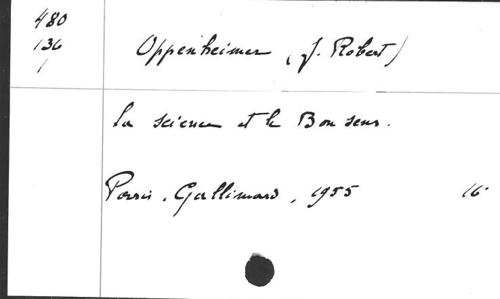 480
136
1
Oppenheimer (J. Robert)
La science et le Bon sens.
Paris, Gallimard, 1955 16°